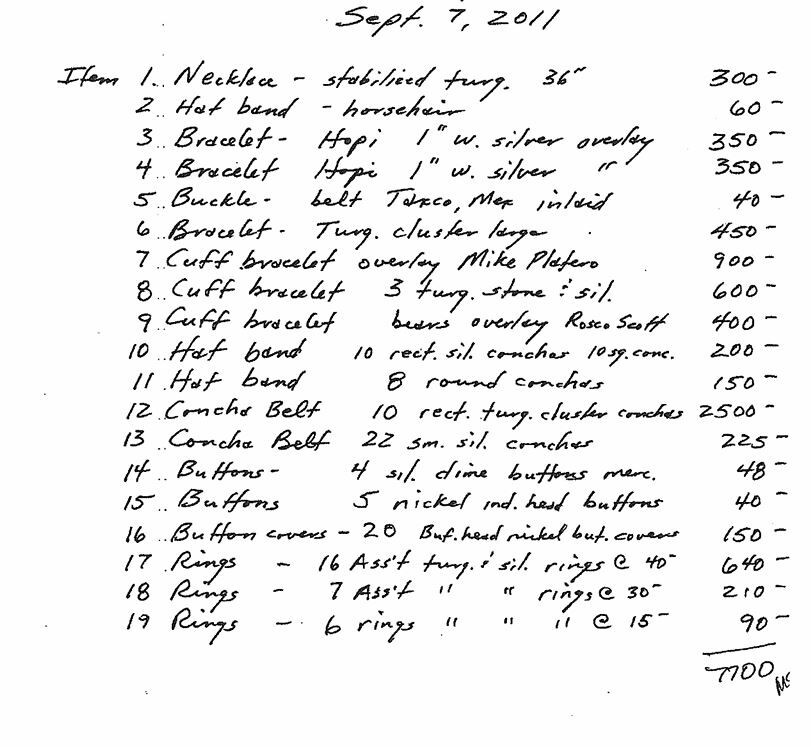 Sept. 7, 2011
Item 1. Necklace - stabilized turq. 36" 300-
2. Hat band - horsehair 60-
3. Bracelet- Hopi 1" w. silver overlay 350-
4. Bracelet Hopi 1" w. silver " 350-
5. Buckle- belt Taxco, Mex inlaid 40-
6. Bracelet- Turq. cluster large 450-
7. Cuff bracelet overlay Mike Platero 900-
8. Cuff bracelet 3 turq. stone & sil. 600-
9. Cuff bracelet bears overlay Rosco Scott 400-
10. Hat band 10 rect. sil. conchas 10 sq. conc. 200-
11. Hat band 8 round conchas 150-
12. Concha Belt 10 rect. turq. cluster conchas 2500-
13. Concha Belt 22 sm. sil. conchas 225-
14. Buttons- 4 sil. dime buttons merc. 48-
15. Buttons 5 nickel ind. head buttons 40-
16. Button covers - 20 Buf. head nickel but. covers 150-
17. Rings - 16 Ass't turq. & sil. rings @ 40- 640-
18. Rings - 7 Ass't " " rings @ 30- 210-
19. Rings - 6 rings " " " @ 15- 90-
7700